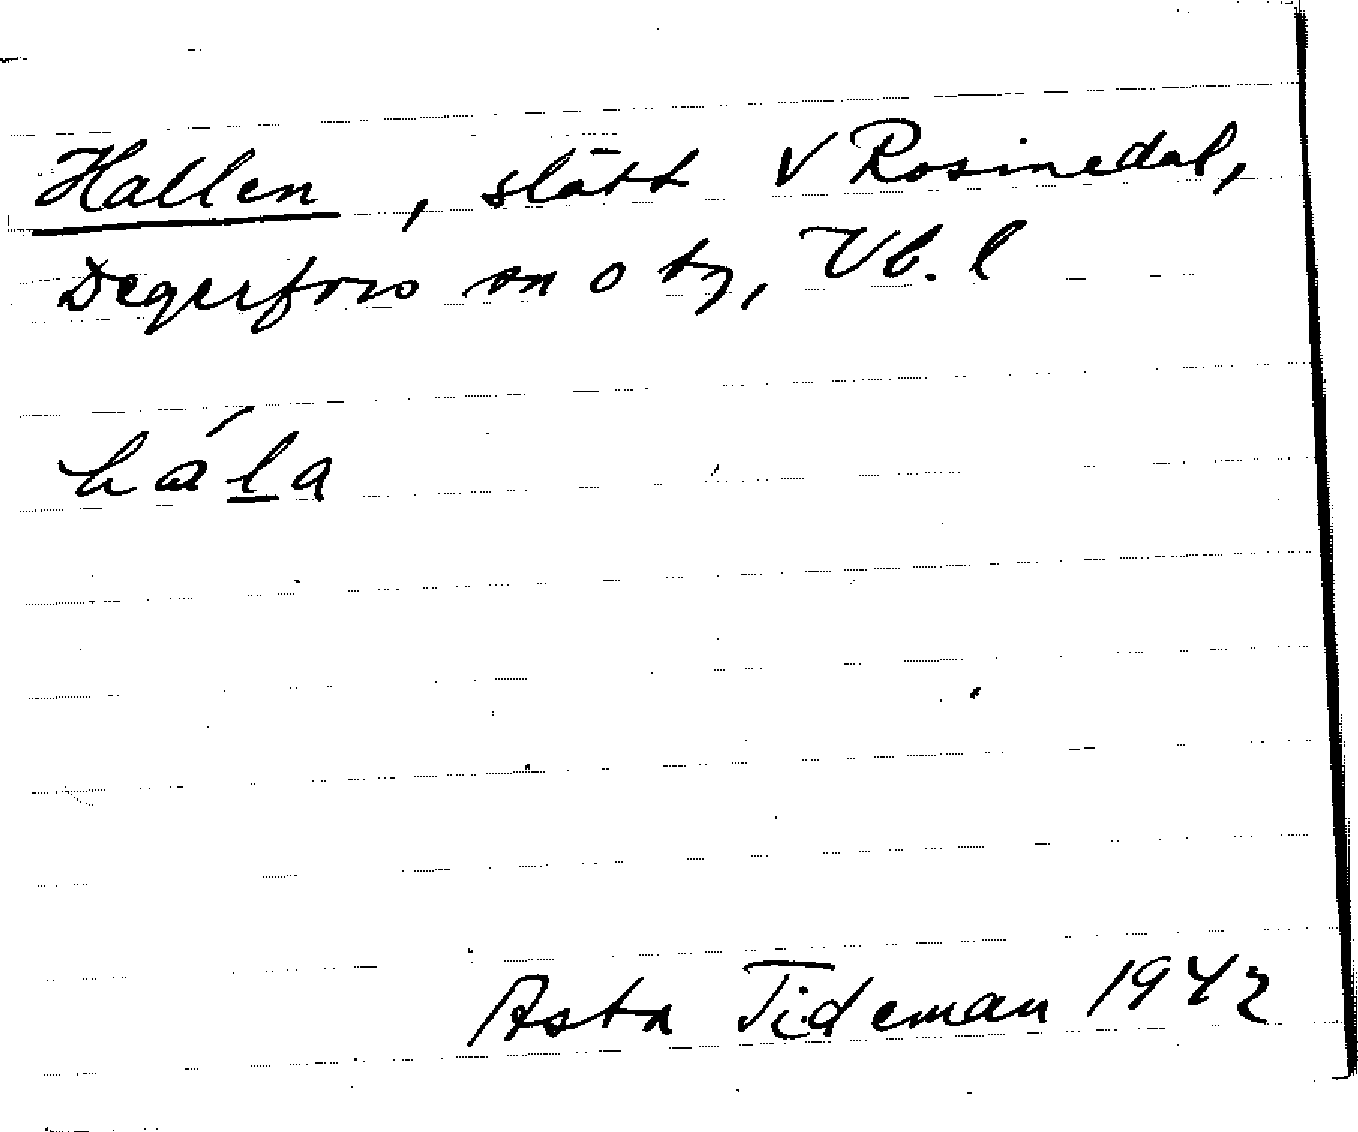 Hallen, slått V Rosinedal,
Degerfors sn o by, Vb. l
hála
Asta Tideman 1942